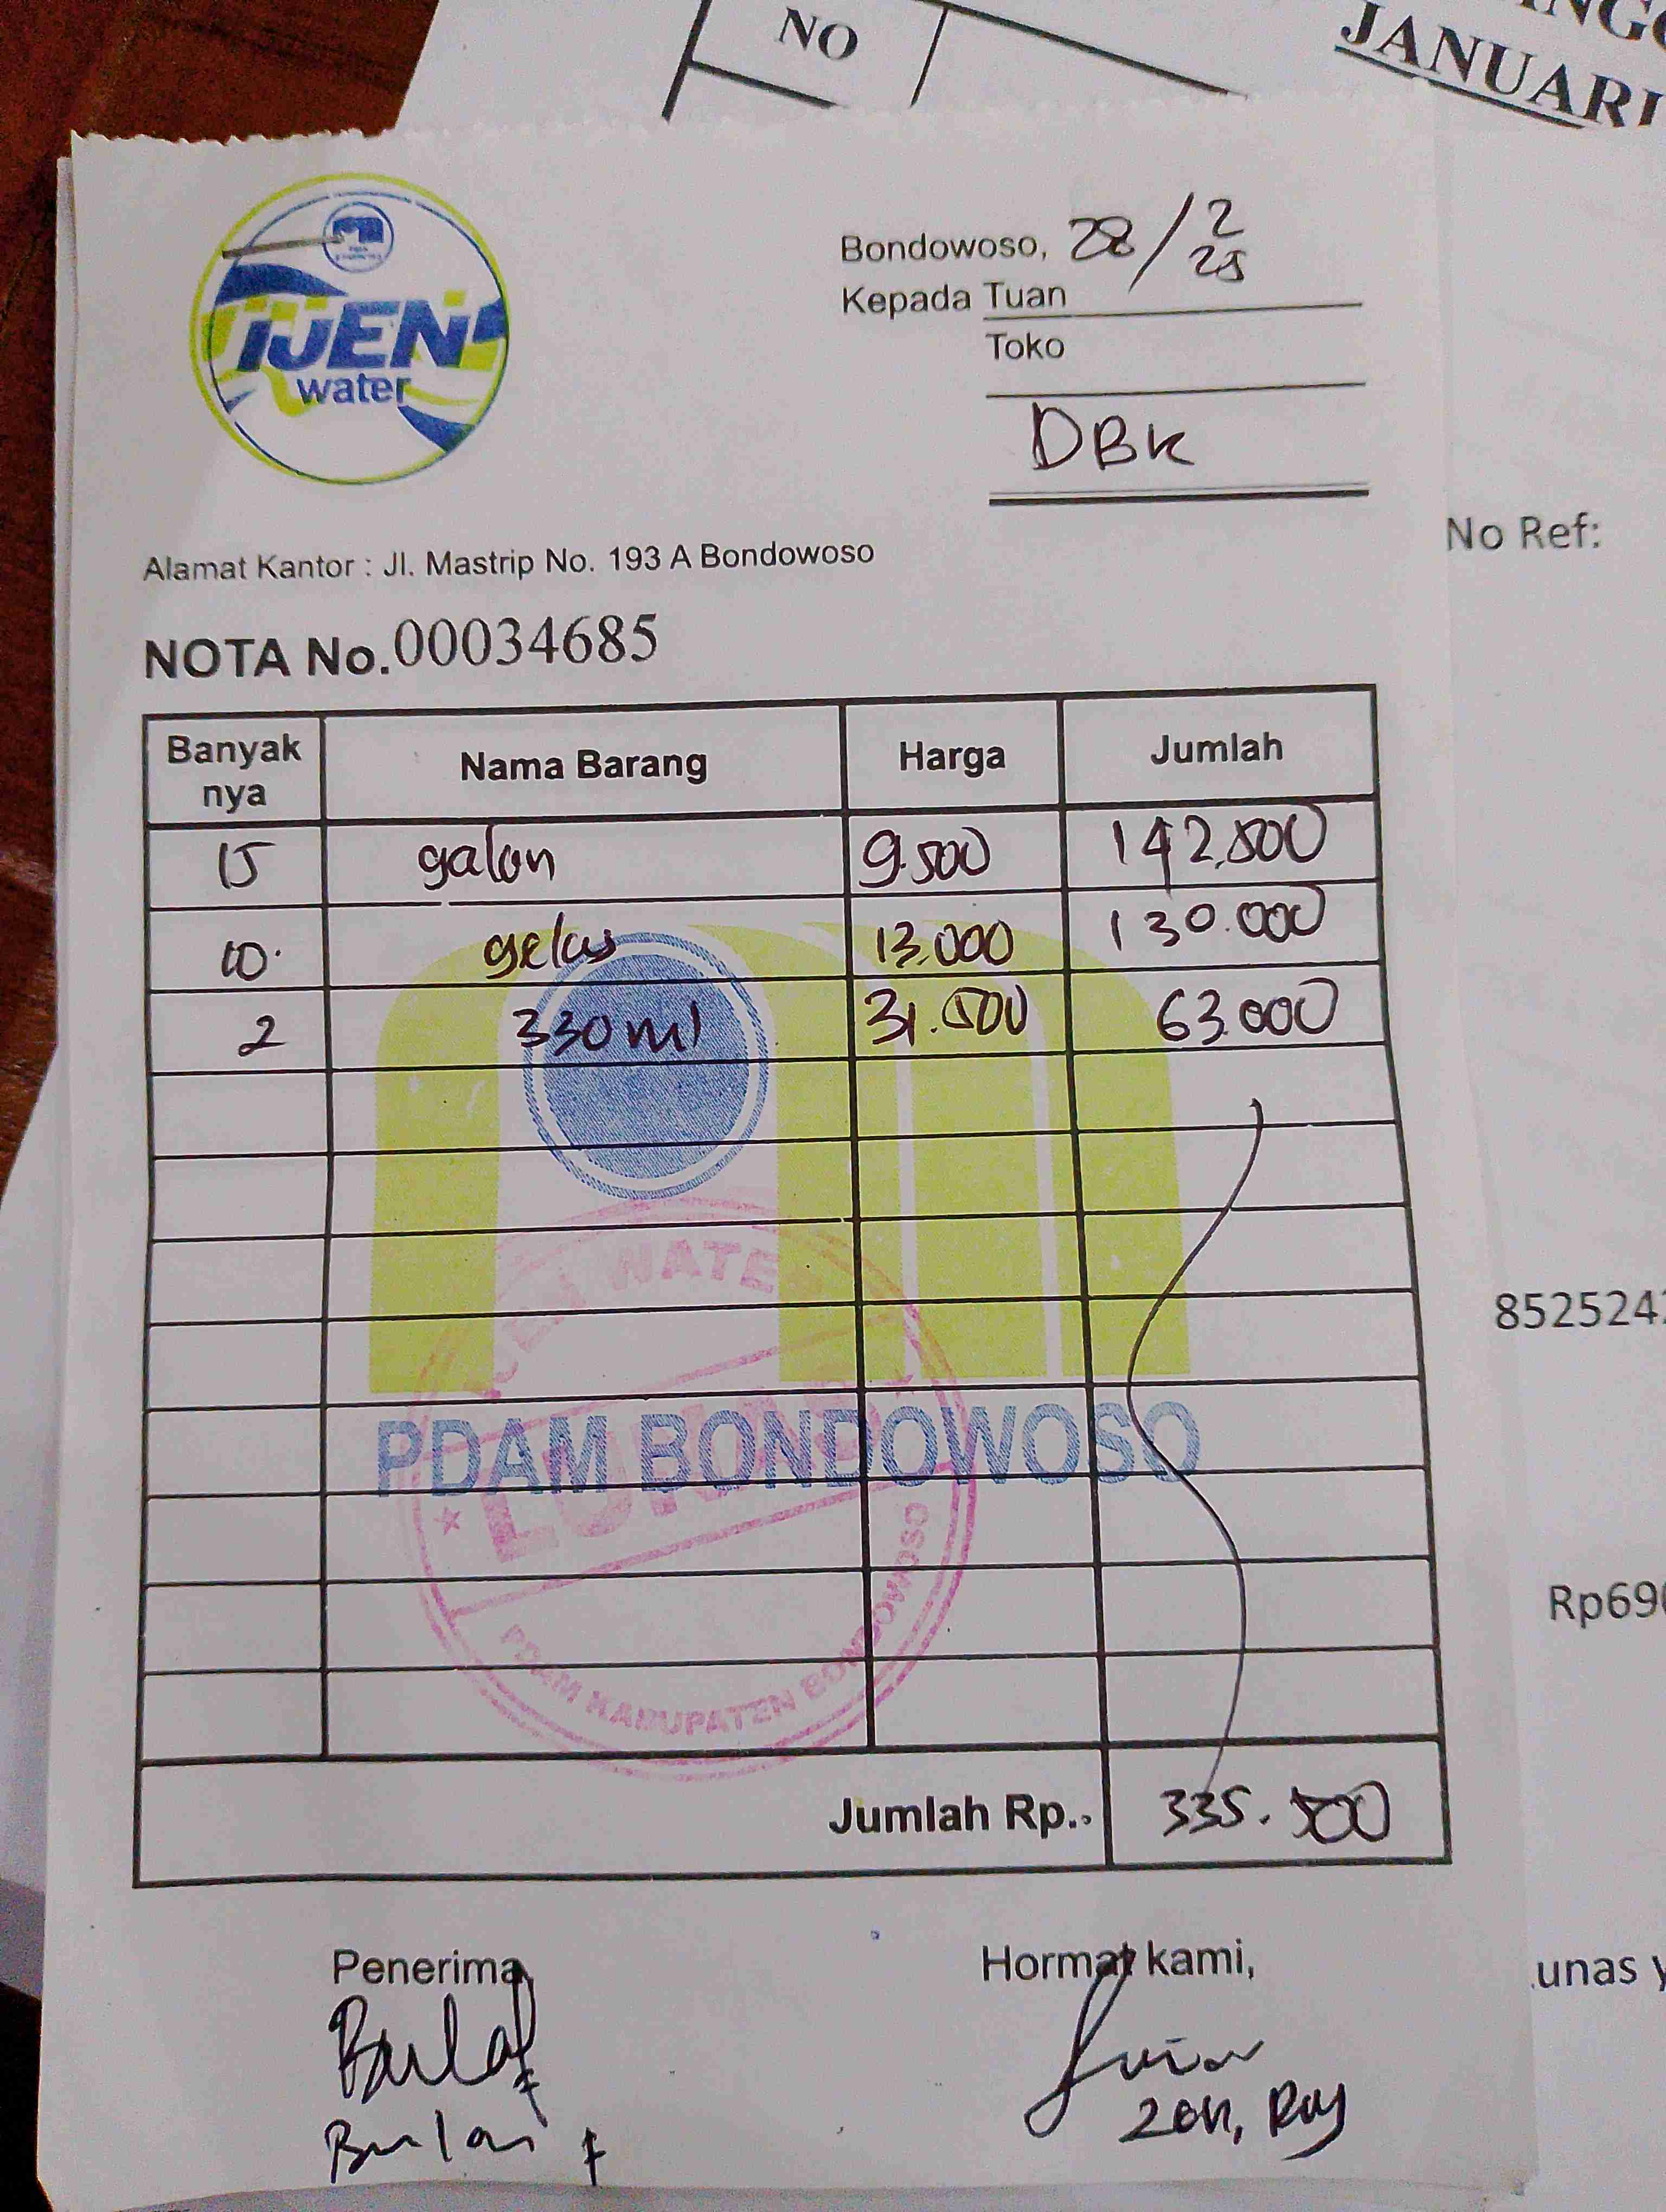 NO
JANUARI
IJEN
water
Bondowoso, 28/2 25
Kepada Tuan
Toko
DBK
No Ref:
Alamat Kantor : Jl. Mastrip No. 193 A Bondowoso
NOTA No. 00034685
Banyak nya Nama Barang Harga Jumlah
15 galon 9.500 142.500
10. gelas 13.000 130.000
2 330 ml 31.500 63.000
IJEN WATER
LUNAS
PDAM BONDOWOSO
PDAM KABUPATEN BONDOWOSO
Jumlah Rp.. 335.500
Penerima, Hormat kami,